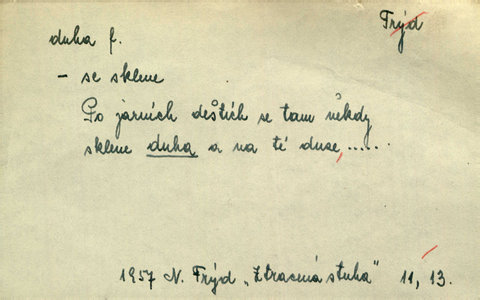 Frýd
duha f.
– se sklene
Po jarních deštích se tam někdy
sklene duha a na té duse, .....
1957 N. Frýd „Ztracená stuha" 11, 13.